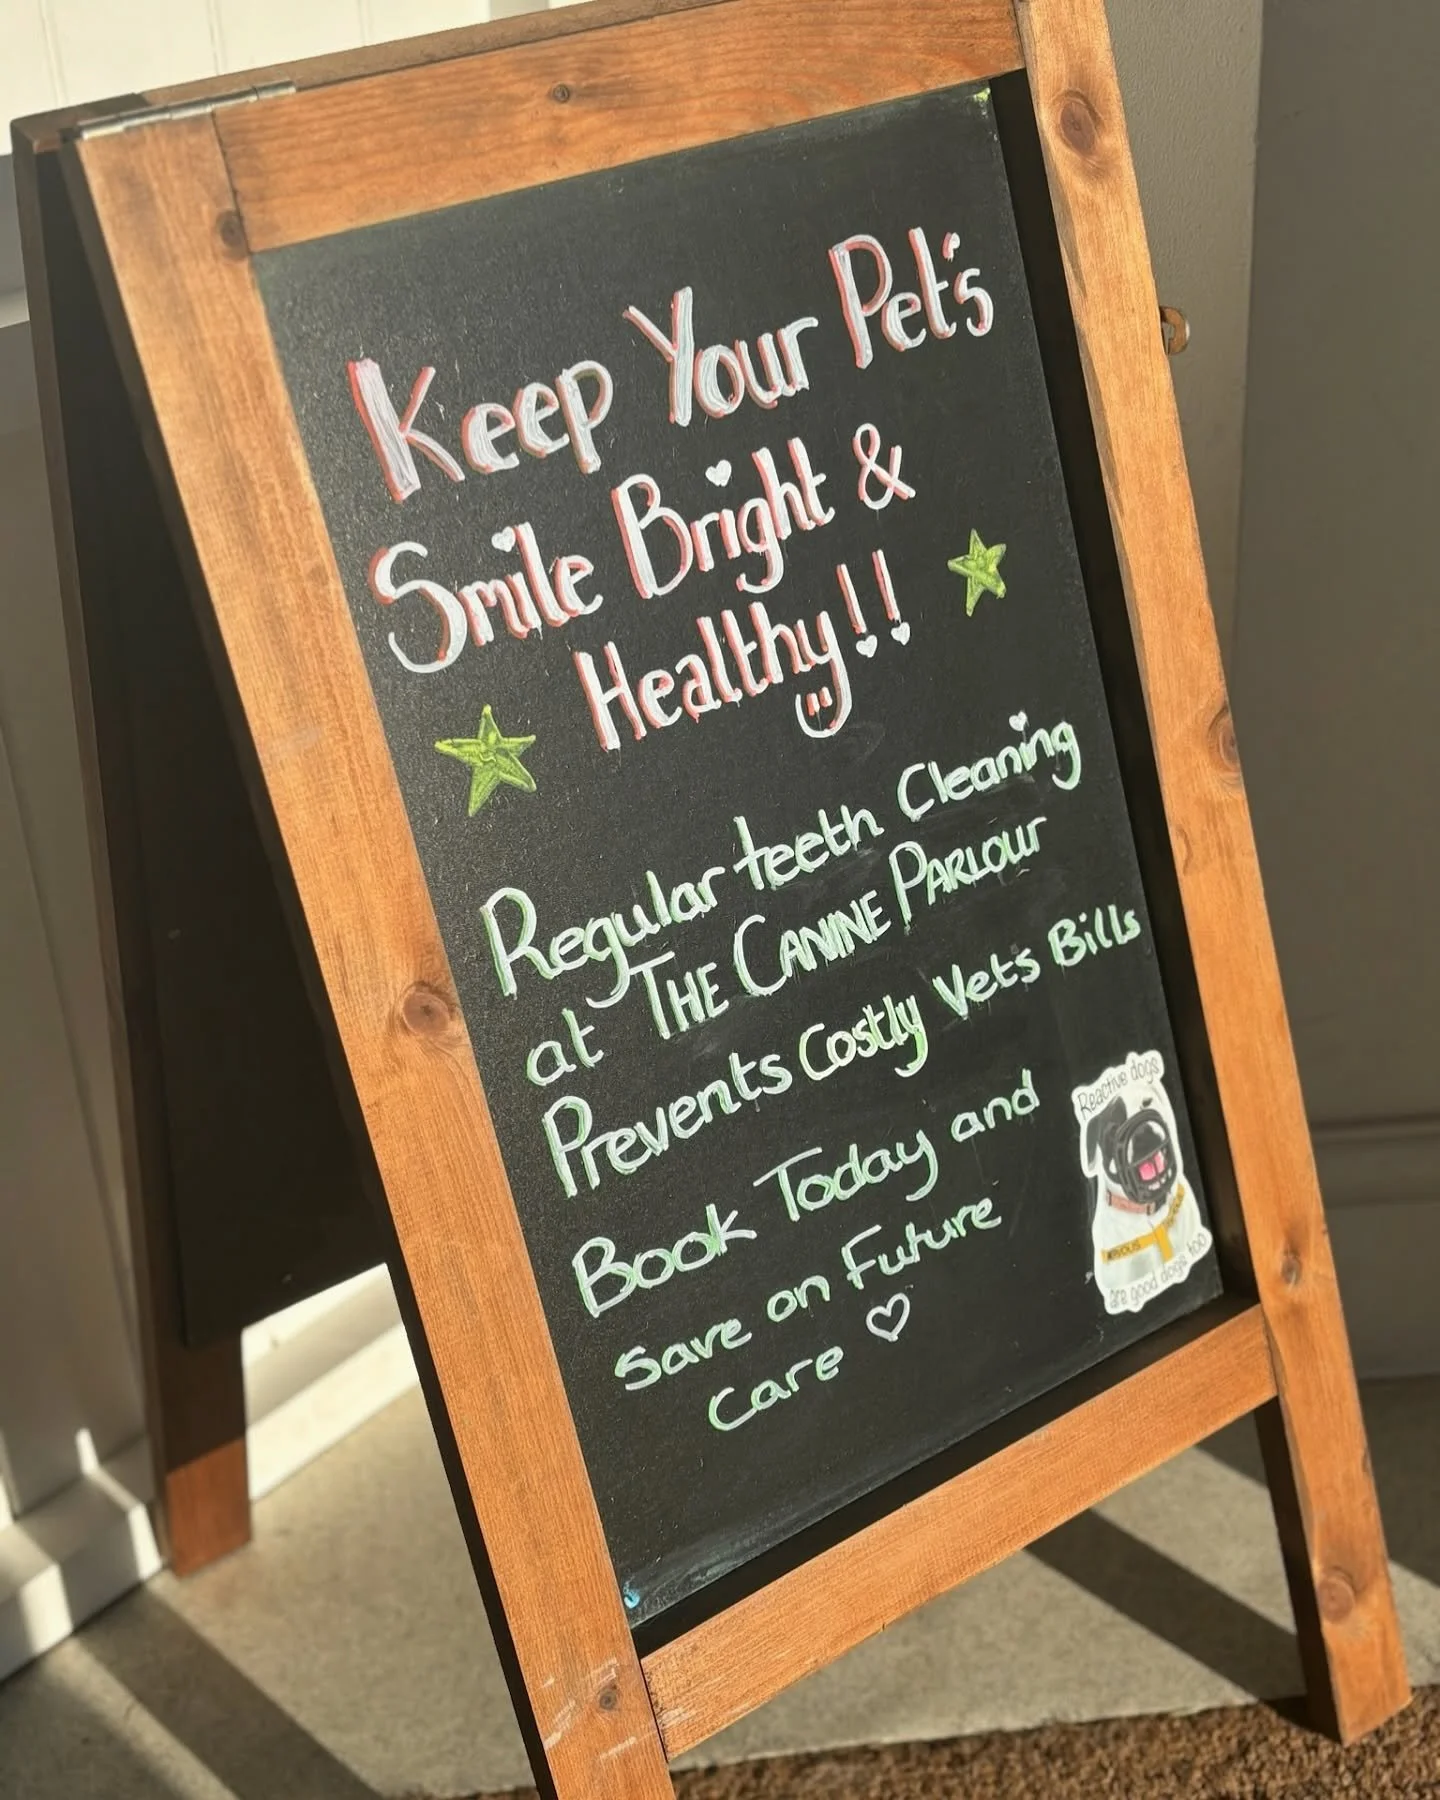 Keep Your Pet's
Smile Bright &
Healthy!!
Regular teeth Cleaning
at THE CANINE PARLOUR
Prevents Costly Vets Bills
Book Today and
Save on Future
Care ♡
Reactive dogs
are good dogs too